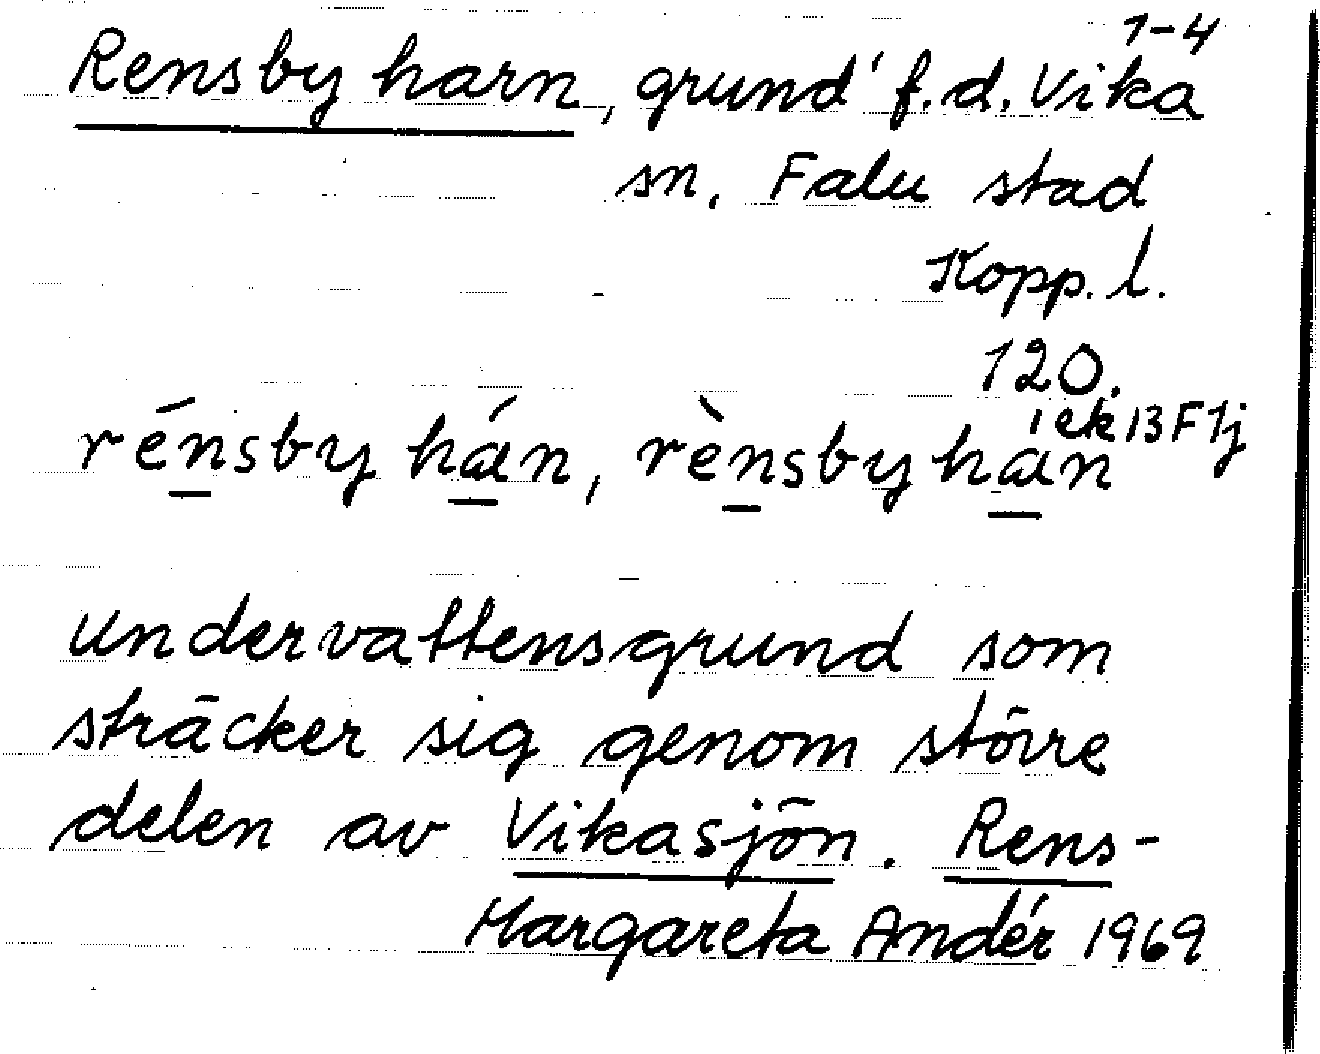 1-4
Rensby harn, grund' f.d. Vika
sn. Falu stad
Kopp. l.
120.
ek 13 F 1j
rénsby hán, rènsbyhán
undervattensgrund som
sträcker sig genom större
delen av Vikasjön. Rens-
Margareta Andér 1969